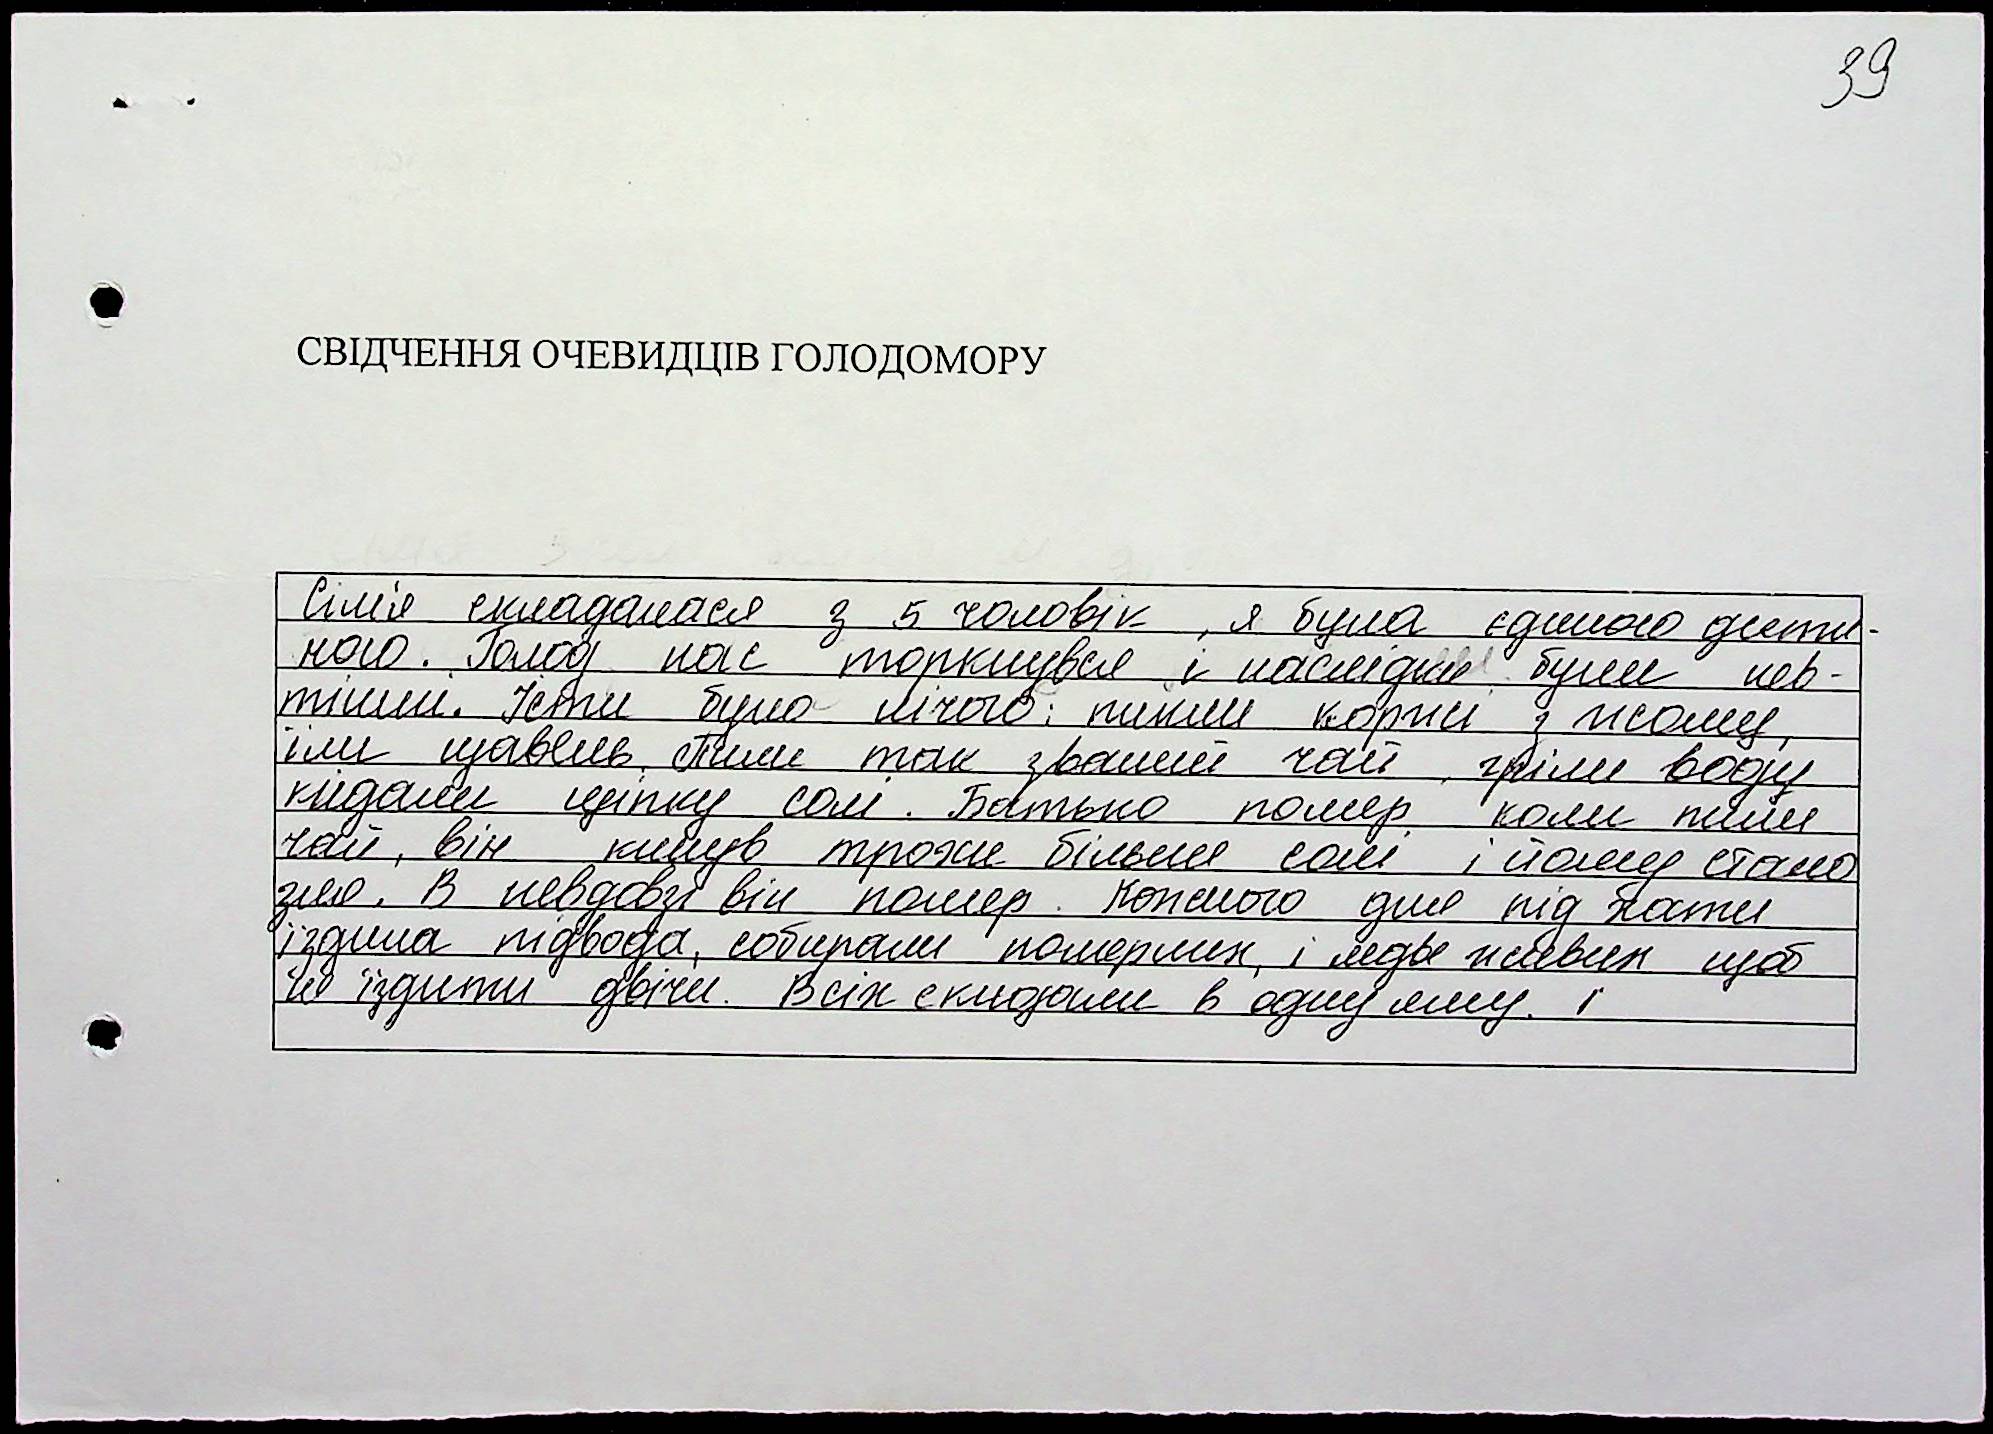 39
СВІДЧЕННЯ ОЧЕВИДЦІВ ГОЛОДОМОРУ
Сім'я складалася з 5 чоловік, я була єдиною дити-
ною. Голод нас торкнувся і наслідки були нев-
тішні. Їсти було нічого: пикли коржі з жому,
їли щавель. Пили так званий чай, гріли воду
кидали щіпку солі. Батько помер коли пили
чай, він кинув трохи більше солі і йому стало
зле. В невдовзі він помер. Кожного дня під хати
їздила підвода, собирали померлих, і ледве живих щоб
не їздити двічи. Всіх скидали в одну яму. І